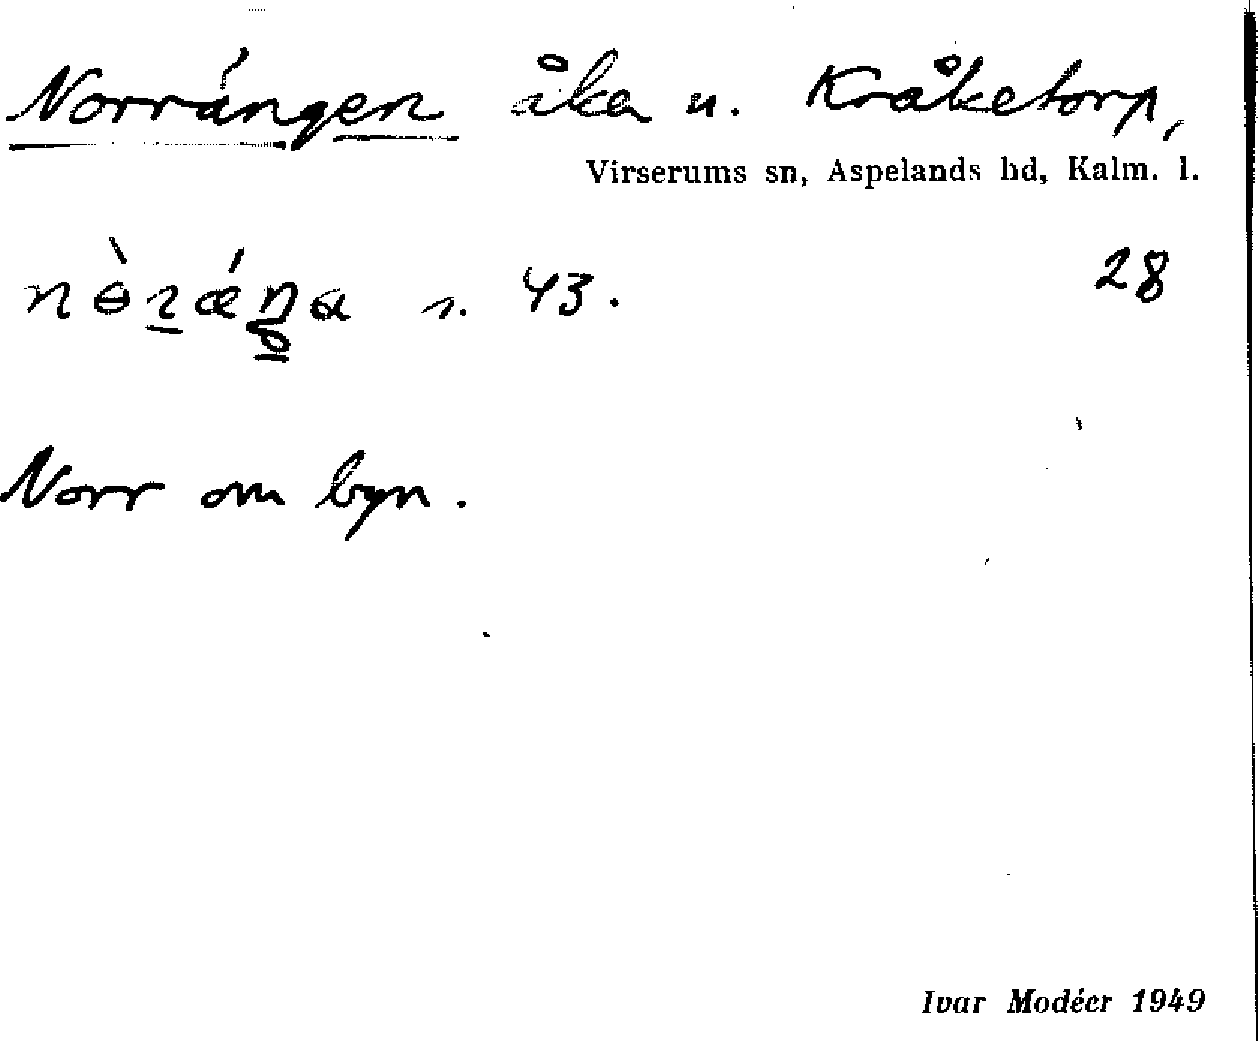 Norrängen åker u. Kråketorp,
Virserums sn, Aspelands hd, Kalm. l.
s. 43. 28
Norr om byn.
Ivar Modéer 1949